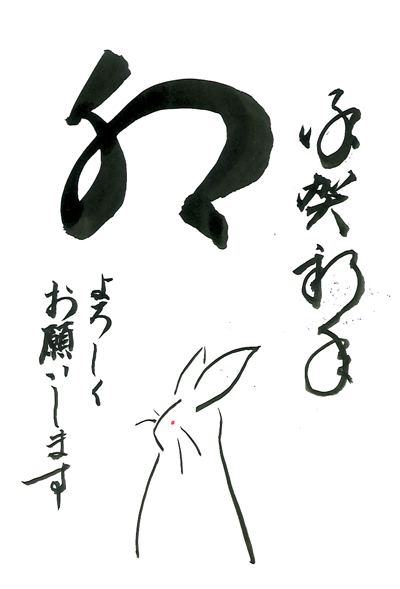 恭賀新年
卯
よろしく
お願いします